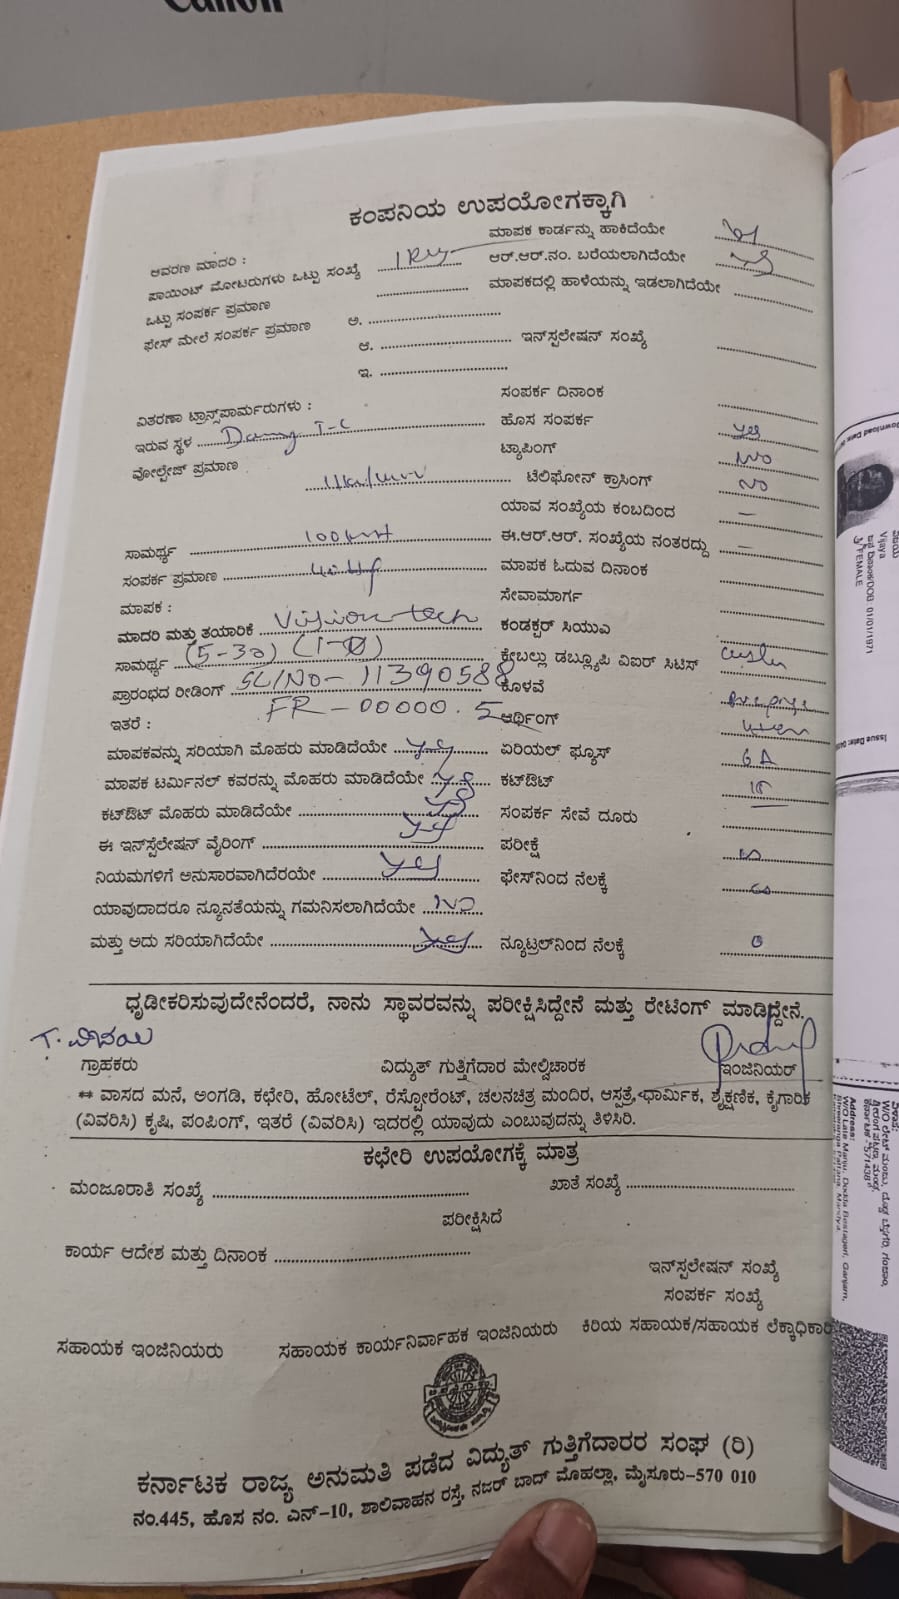 Canon
ಕಂಪನಿಯ ಉಪಯೋಗಕ್ಕಾಗಿ
ಮಾಪಕ ಕಾರ್ಡನ್ನು ಹಾಕಿದೆಯೇ
ಆವರಣ ಮಾದರಿ :
ಆರ್.ಆರ್.ನಂ. ಬರೆಯಲಾಗಿದೆಯೇ
ಪಾಯಿಂಟ್ ಮೋಟರುಗಳು ಒಟ್ಟು ಸಂಖ್ಯೆ
ಮಾಪಕದಲ್ಲಿ ಹಾಳೆಯನ್ನು ಇಡಲಾಗಿದೆಯೇ
ಒಟ್ಟು ಸಂಪರ್ಕ ಪ್ರಮಾಣ
ಫೇಸ್ ಮೇಲೆ ಸಂಪರ್ಕ ಪ್ರಮಾಣ ಅ.
ಆ. ಇನ್‌ಸ್ಪಲೇಷನ್ ಸಂಖ್ಯೆ
ಇ.
ಸಂಪರ್ಕ ದಿನಾಂಕ
ವಿತರಣಾ ಟ್ರಾನ್ಸ್‌ಪಾರ್ಮರುಗಳು :
ಹೊಸ ಸಂಪರ್ಕ yes
ಇರುವ ಸ್ಥಳ T-C
ಟ್ಯಾಪಿಂಗ್ NO
ವೋಲ್ಟೇಜ್ ಪ್ರಮಾಣ
ಟೆಲಿಫೋನ್ ಕ್ರಾಸಿಂಗ್ NO
ಯಾವ ಸಂಖ್ಯೆಯ ಕಂಬದಿಂದ –
ಸಾಮರ್ಥ್ಯ ಈ.ಆರ್.ಆರ್. ಸಂಖ್ಯೆಯ ನಂತರದ್ದು –
ಸಂಪರ್ಕ ಪ್ರಮಾಣ ಮಾಪಕ ಓದುವ ದಿನಾಂಕ
ಮಾಪಕ : ಸೇವಾಮಾರ್ಗ
ಮಾದರಿ ಮತ್ತು ತಯಾರಿಕೆ Visiontech ಕಂಡಕ್ಟರ್ ಸಿಯುಎ
ಸಾಮರ್ಥ್ಯ (5-30) (1-Ø) ಕೇಬಲ್ಲು ಡಬ್ಲ್ಯೂಪಿ ವಿಐರ್ ಸಿಟಿಸ್
ಪ್ರಾರಂಭದ ರೀಡಿಂಗ್ SL/NO- 11390588 ಕೊಳವೆ
ಇತರೆ : FR - 00000.5 ಆರ್ಥಿಂಗ್
ಮಾಪಕವನ್ನು ಸರಿಯಾಗಿ ಮೊಹರು ಮಾಡಿದೆಯೇ yes ಏರಿಯಲ್ ಫ್ಯೂಸ್ 6A
ಮಾಪಕ ಟರ್ಮಿನಲ್ ಕವರನ್ನು ಮೊಹರು ಮಾಡಿದೆಯೇ yes ಕಟ್‌ಔಟ್
ಕಟ್‌ಔಟ್ ಮೊಹರು ಮಾಡಿದೆಯೇ ಸಂಪರ್ಕ ಸೇವೆ ದೂರು
ಈ ಇನ್‌ಸ್ಪಲೇಷನ್ ವೈರಿಂಗ್ yes ಪರೀಕ್ಷೆ
ನಿಯಮಗಳಿಗೆ ಅನುಸಾರವಾಗಿದೆರಯೇ yes ಫೇಸ್‌ನಿಂದ ನೆಲಕ್ಕೆ
ಯಾವುದಾದರೂ ನ್ಯೂನತೆಯನ್ನು ಗಮನಿಸಲಾಗಿದೆಯೇ NO
ಮತ್ತು ಅದು ಸರಿಯಾಗಿದೆಯೇ yes ನ್ಯೂಟ್ರಲ್‌ನಿಂದ ನೆಲಕ್ಕೆ 0
ಧೃಡೀಕರಿಸುವುದೇನೆಂದರೆ, ನಾನು ಸ್ಥಾವರವನ್ನು ಪರೀಕ್ಷಿಸಿದ್ದೇನೆ ಮತ್ತು ರೇಟಿಂಗ್ ಮಾಡಿದ್ದೇನೆ.
ಗ್ರಾಹಕರು ವಿದ್ಯುತ್ ಗುತ್ತಿಗೆದಾರ ಮೇಲ್ವಿಚಾರಕ ಇಂಜಿನಿಯರ್
** ವಾಸದ ಮನೆ, ಅಂಗಡಿ, ಕಛೇರಿ, ಹೋಟೆಲ್, ರೆಸ್ಟೋರೆಂಟ್, ಚಲನಚಿತ್ರ ಮಂದಿರ, ಆಸ್ಪತ್ರೆ, ಧಾರ್ಮಿಕ, ಶೈಕ್ಷಣಿಕ, ಕೈಗಾರಿಕ
(ವಿವರಿಸಿ) ಕೃಷಿ, ಪಂಪಿಂಗ್, ಇತರೆ (ವಿವರಿಸಿ) ಇದರಲ್ಲಿ ಯಾವುದು ಎಂಬುವುದನ್ನು ತಿಳಿಸಿರಿ.
ಕಛೇರಿ ಉಪಯೋಗಕ್ಕೆ ಮಾತ್ರ
ಮಂಜೂರಾತಿ ಸಂಖ್ಯೆ ಖಾತೆ ಸಂಖ್ಯೆ
ಪರೀಕ್ಷಿಸಿದೆ
ಕಾರ್ಯ ಆದೇಶ ಮತ್ತು ದಿನಾಂಕ
ಇನ್‌ಸ್ಪಲೇಷನ್ ಸಂಖ್ಯೆ
ಸಂಪರ್ಕ ಸಂಖ್ಯೆ
ಸಹಾಯಕ ಇಂಜಿನಿಯರು ಸಹಾಯಕ ಕಾರ್ಯನಿರ್ವಾಹಕ ಇಂಜಿನಿಯರು ಕಿರಿಯ ಸಹಾಯಕ/ಸಹಾಯಕ ಲೆಕ್ಕಾಧಿಕಾರಿ
ಕರ್ನಾಟಕ ರಾಜ್ಯ ಅನುಮತಿ ಪಡೆದ ವಿದ್ಯುತ್ ಗುತ್ತಿಗೆದಾರರ ಸಂಘ (ರಿ)
ನಂ.445, ಹೊಸ ನಂ. ಎನ್-10, ಶಾಲಿವಾಹನ ರಸ್ತೆ, ನಜರ್ ಬಾದ್ ಮೊಹಲ್ಲಾ, ಮೈಸೂರು-570 010
Vijaya
DOB: 01/01/1971
FEMALE
Address:
W/O Late Manju, Dodda Bestageri, Ganjam,
Mandya,